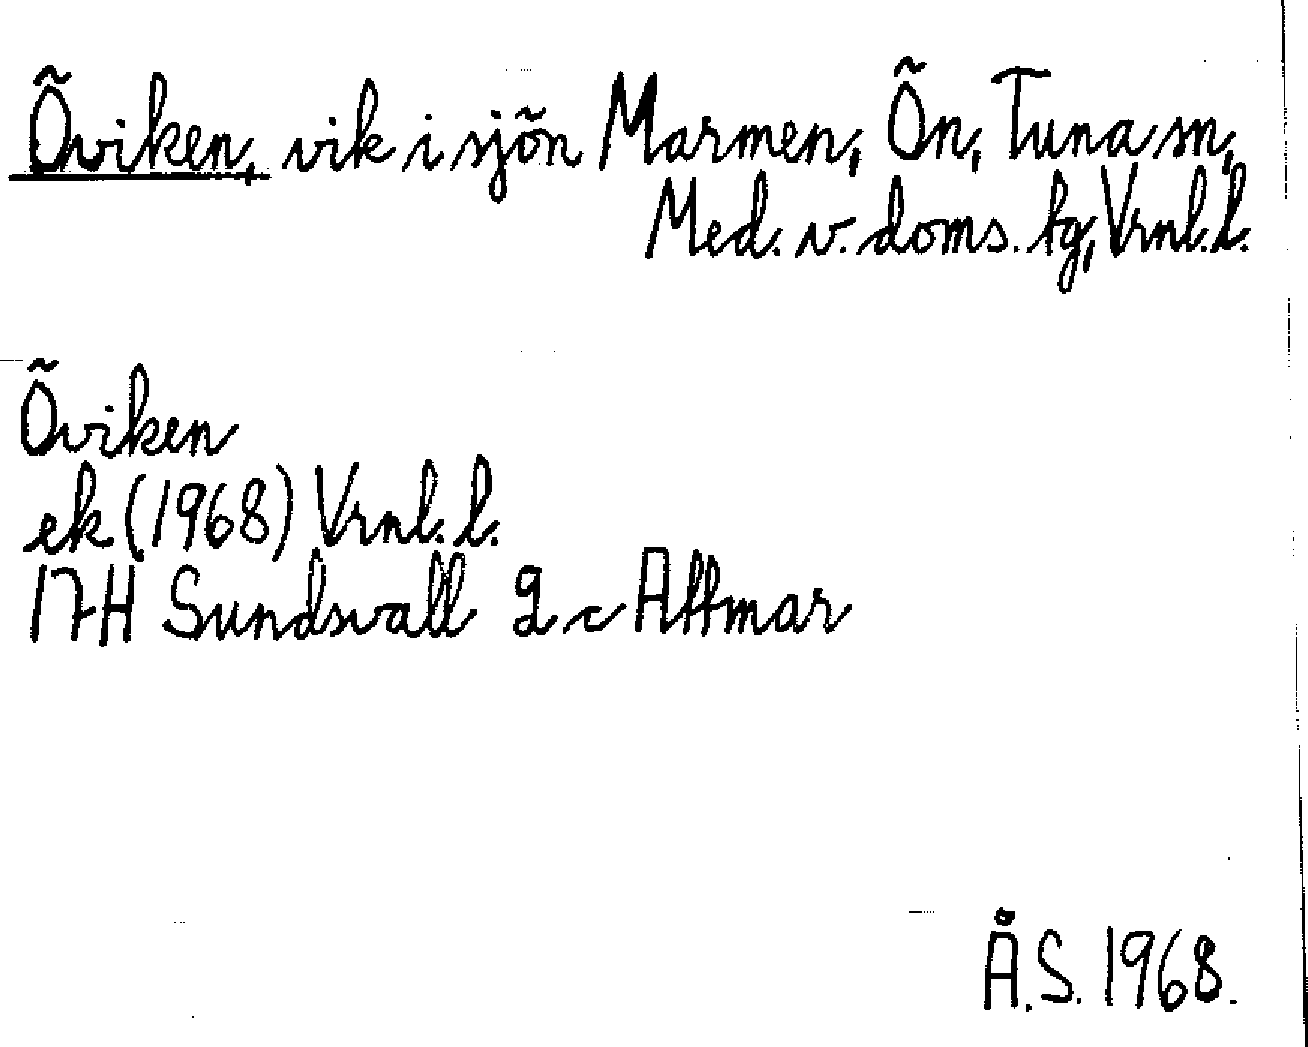 Õviken, vik i sjõn Marmen, Õn, Tuna sn,
Med. v. doms. tg, Vrnl. l.
Õviken
ek (1968) Vrnl. l.
17H Sundsvall 2 c Attmar
Å.S. 1968.